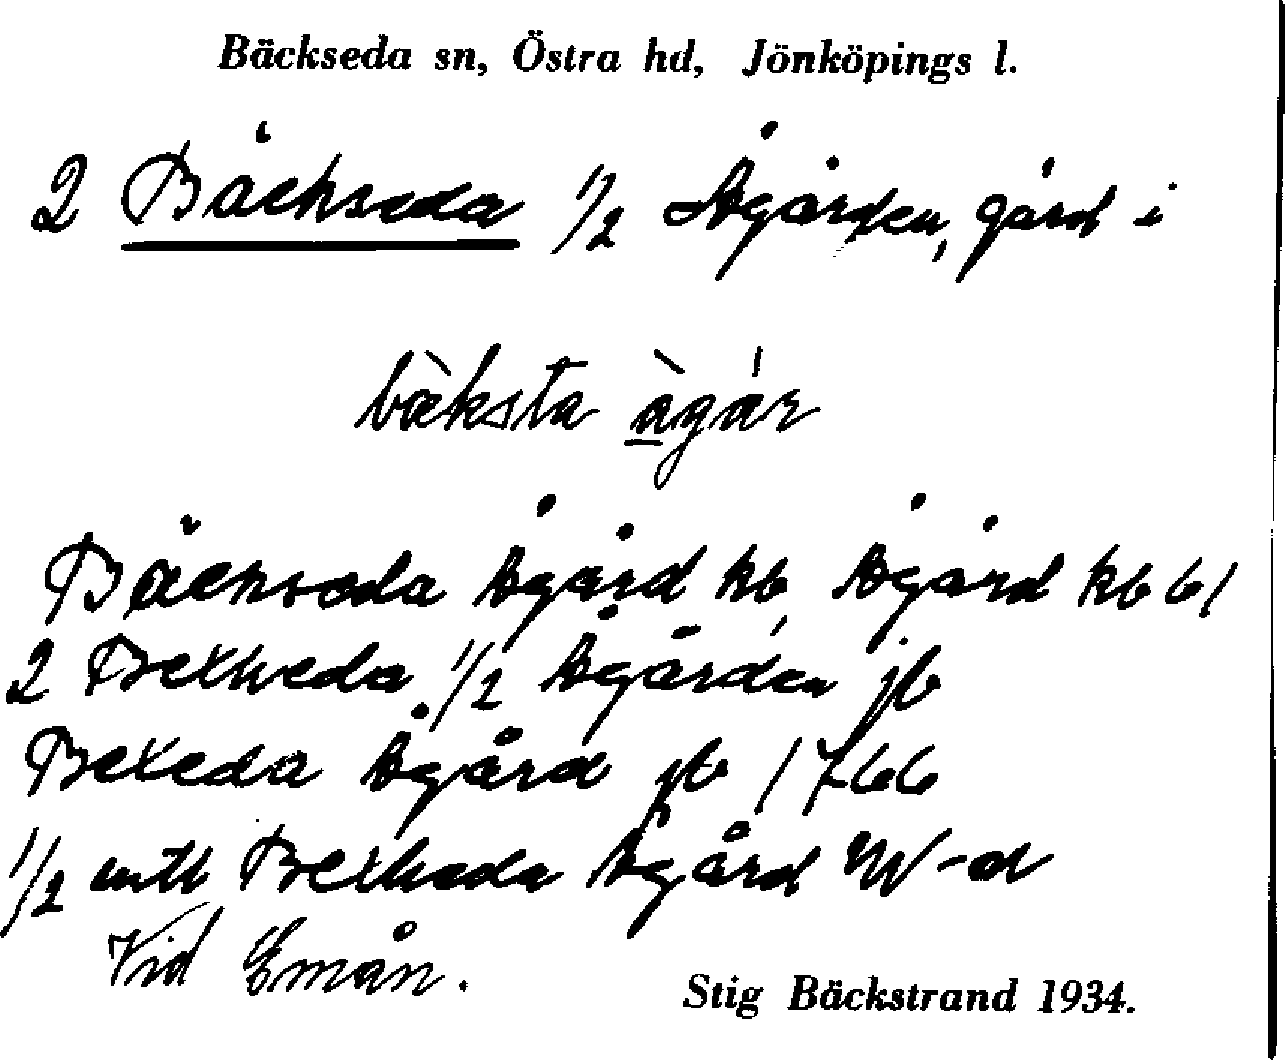 Bäckseda sn, Östra hd, Jönköpings l.
2 Bäckseda 1/2 Ågården, gård i
bæ̀ksta àgár
Bäckseda Ågård kb, Ågård kb 61
2 Bexheda 1/2 Ågården jb
Bexeda Ågård jb 1766
1/2 mtl Bexheda Ågård W-d
Vid Emån.
Stig Bäckstrand 1934.